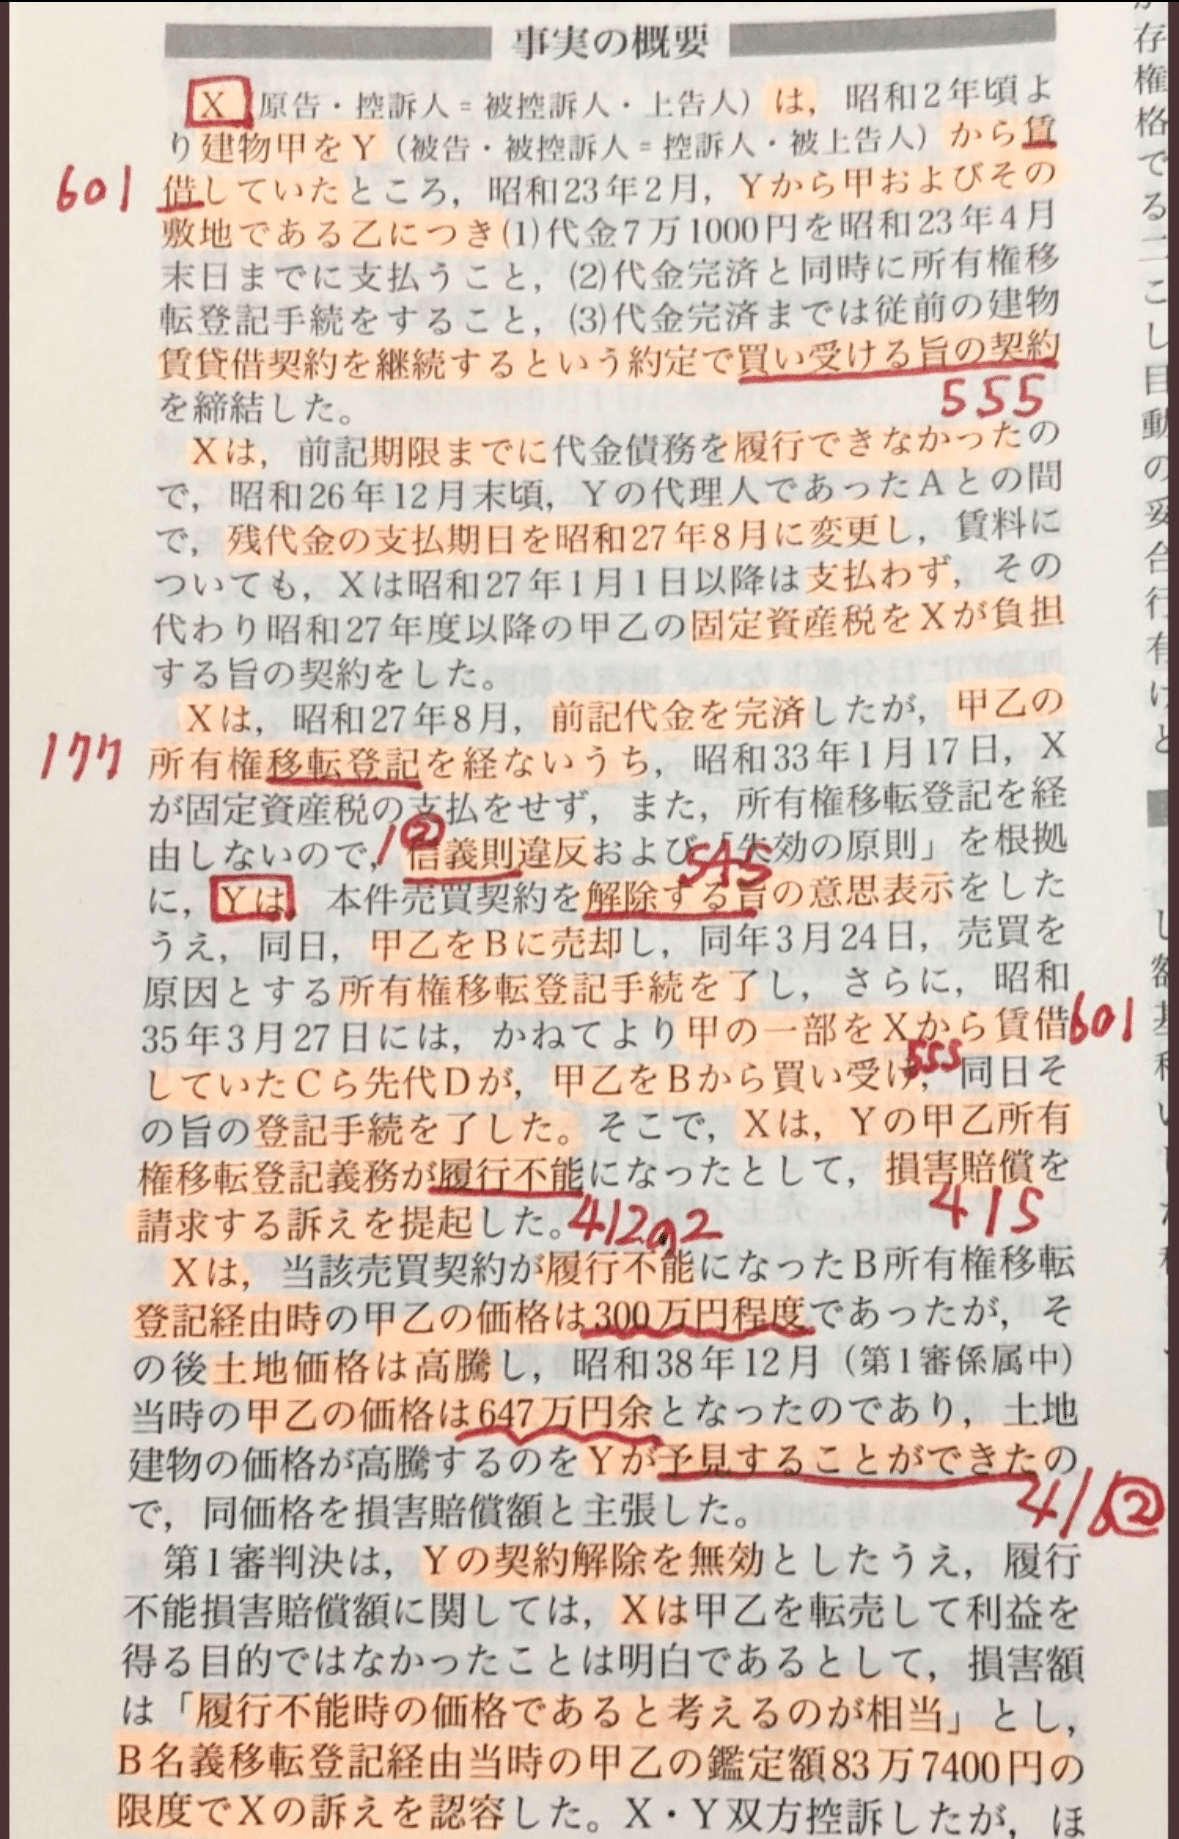 事実の概要
X（原告・控訴人＝被控訴人・上告人）は，昭和2年頃よ
り建物甲をY（被告・被控訴人＝控訴人・被上告人）から賃
601
借していたところ，昭和23年2月，Yから甲およびその
敷地である乙につき(1)代金7万1000円を昭和23年4月
末日までに支払うこと，(2)代金完済と同時に所有権移
転登記手続をすること，(3)代金完済までは従前の建物
賃貸借契約を継続するという約定で買い受ける旨の契約
555
を締結した。
Xは，前記期限までに代金債務を履行できなかったの
で，昭和26年12月末頃，Yの代理人であったAとの間
で，残代金の支払期日を昭和27年8月に変更し，賃料に
ついても，Xは昭和27年1月1日以降は支払わず，その
代わり昭和27年度以降の甲乙の固定資産税をXが負担
する旨の契約をした。
Xは，昭和27年8月，前記代金を完済したが，甲乙の
177
所有権移転登記を経ないうち，昭和33年1月17日，X
が固定資産税の支払をせず，また，所有権移転登記を経
1②
由しないので，信義則違反および「失効の原則」を根拠
545
に，Yは，本件売買契約を解除する旨の意思表示をした
うえ，同日，甲乙をBに売却し，同年3月24日，売買を
原因とする所有権移転登記手続を了し，さらに，昭和
35年3月27日には，かねてより甲の一部をXから賃借
601
555
していたCら先代Dが，甲乙をBから買い受け，同日そ
の旨の登記手続を了した。そこで，Xは，Yの甲乙所有
権移転登記義務が履行不能になったとして，損害賠償を
415
請求する訴えを提起した。
412の2
Xは，当該売買契約が履行不能になったB所有権移転
登記経由時の甲乙の価格は300万円程度であったが，そ
の後土地価格は高騰し，昭和38年12月（第1審係属中）
当時の甲乙の価格は647万円余となったのであり，土地
建物の価格が高騰するのをYが予見することができたの
416②
で，同価格を損害賠償額と主張した。
第1審判決は，Yの契約解除を無効としたうえ，履行
不能損害賠償額に関しては，Xは甲乙を転売して利益を
得る目的ではなかったことは明白であるとして，損害額
は「履行不能時の価格であると考えるのが相当」とし，
B名義移転登記経由当時の甲乙の鑑定額83万7400円の
限度でXの訴えを認容した。X・Y双方控訴したが，ほ
存
権
格
で
る
二
こ
し
目
動
の
妥
台
行
有
け
と